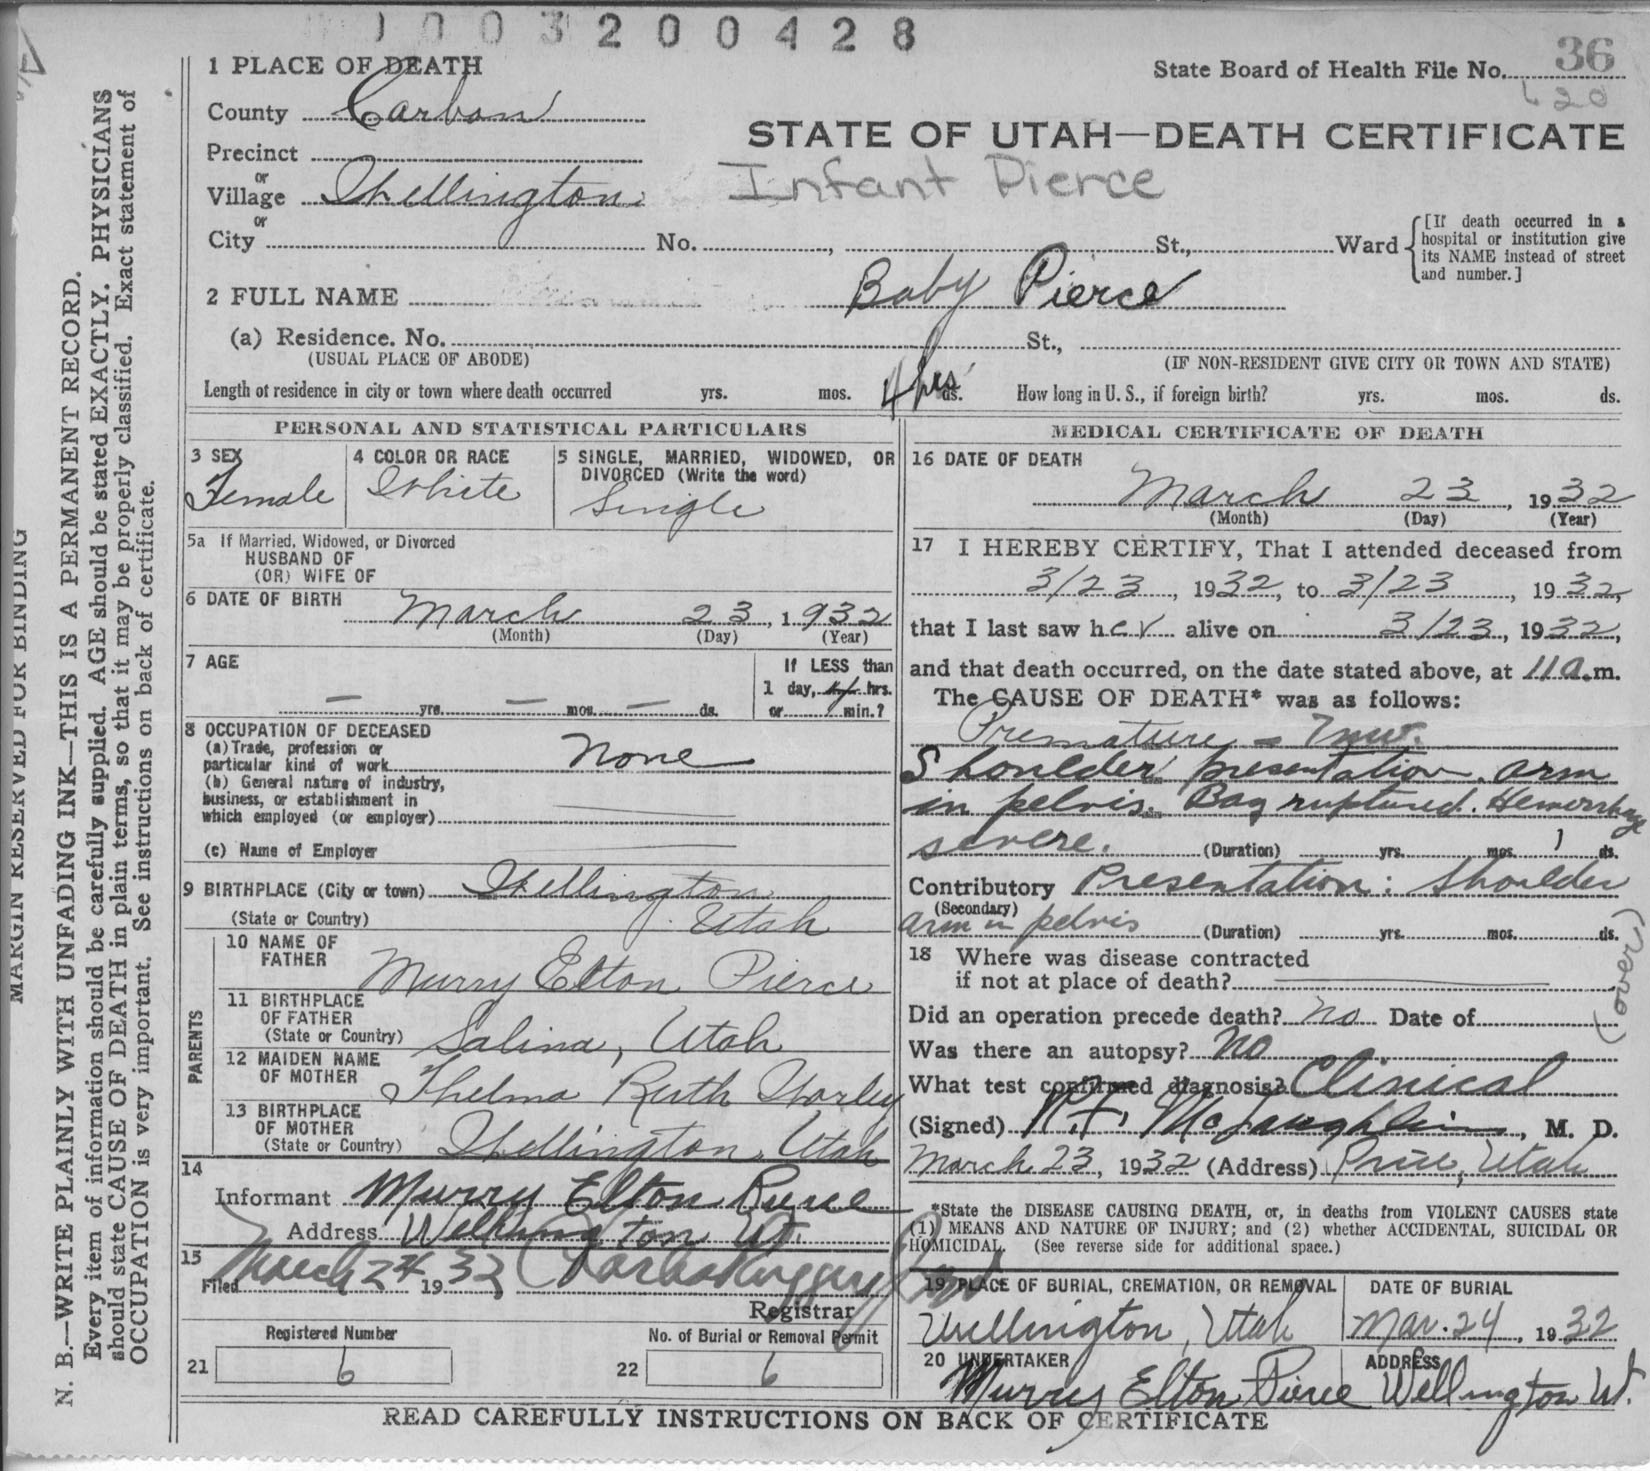 1003200428
1 PLACE OF DEATH
State Board of Health File No. 36
620
County Carbon
STATE OF UTAH—DEATH CERTIFICATE
Precinct
Infant Pierce
or
Village Wellington
or
City No. , St., Ward
[If death occurred in a
hospital or institution give
its NAME instead of street
and number.]
2 FULL NAME Baby Pierce
(a) Residence. No. St.,
(USUAL PLACE OF ABODE) (IF NON-RESIDENT GIVE CITY OR TOWN AND STATE)
Length of residence in city or town where death occurred yrs. mos. 4 hrs ds. How long in U. S., if foreign birth? yrs. mos. ds.
PERSONAL AND STATISTICAL PARTICULARS
3 SEX 4 COLOR OR RACE 5 SINGLE, MARRIED, WIDOWED, OR
DIVORCED (Write the word)
Female White Single
5a If Married, Widowed, or Divorced
HUSBAND OF
(OR) WIFE OF
6 DATE OF BIRTH March 23, 1932
(Month) (Day) (Year)
7 AGE If LESS than
1 day, hrs.
— yrs. — mos. — ds. or min.?
8 OCCUPATION OF DECEASED
(a) Trade, profession or
particular kind of work None
(b) General nature of industry,
business, or establishment in
which employed (or employer)
(c) Name of Employer
9 BIRTHPLACE (City or town) Wellington
(State or Country) Utah
PARENTS
10 NAME OF
FATHER Murry Elton Pierce
11 BIRTHPLACE
OF FATHER
(State or Country) Salina, Utah
12 MAIDEN NAME
OF MOTHER Thelma Ruth
13 BIRTHPLACE
OF MOTHER
(State or Country) Wellington, Utah
14
Informant Murry Elton Pierce
Address Wellington Ut.
15
Filed March 24 1932
Registrar
Registered Number No. of Burial or Removal Permit
21 6 22 6
MEDICAL CERTIFICATE OF DEATH
16 DATE OF DEATH
March 23, 1932
(Month) (Day) (Year)
17 I HEREBY CERTIFY, That I attended deceased from
3/23, 1932, to 3/23, 1932,
that I last saw her alive on 3/23, 1932,
and that death occurred, on the date stated above, at 11 a.m.
The CAUSE OF DEATH* was as follows:
Premature –
Shoulder presentation. arm
in pelvis. Bag ruptured. Hemorrhage
severe. (Duration) yrs. mos. 1 ds.
Contributory Presentation: Shoulder
(Secondary)
arm in pelvis (Duration) yrs. mos. ds.
18 Where was disease contracted
if not at place of death?
(over)
Did an operation precede death? No Date of
Was there an autopsy? No
What test confirmed diagnosis? Clinical
(Signed) McLaughlin, M. D.
March 23, 1932 (Address) Price, Utah
*State the DISEASE CAUSING DEATH, or, in deaths from VIOLENT CAUSES state
(1) MEANS AND NATURE OF INJURY; and (2) whether ACCIDENTAL, SUICIDAL OR
HOMICIDAL. (See reverse side for additional space.)
19 PLACE OF BURIAL, CREMATION, OR REMOVAL DATE OF BURIAL
Wellington, Utah Mar. 24, 1932
20 UNDERTAKER ADDRESS
Murry Elton Pierce Wellington Ut.
READ CAREFULLY INSTRUCTIONS ON BACK OF CERTIFICATE
MARGIN RESERVED FOR BINDING
N. B.—WRITE PLAINLY WITH UNFADING INK—THIS IS A PERMANENT RECORD.
Every item of information should be carefully supplied. AGE should be stated EXACTLY. PHYSICIANS
should state CAUSE OF DEATH in plain terms, so that it may be properly classified. Exact statement of
OCCUPATION is very important. See instructions on back of certificate.